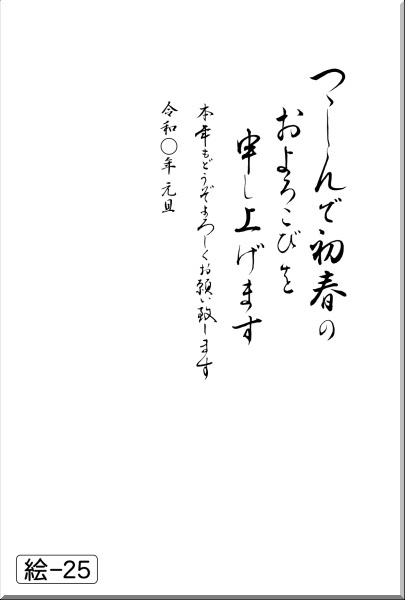 つゝしんで初春の
およろこびを
申し上げます
本年もどうぞよろしくお願い致します
令和〇年 元旦
絵-25